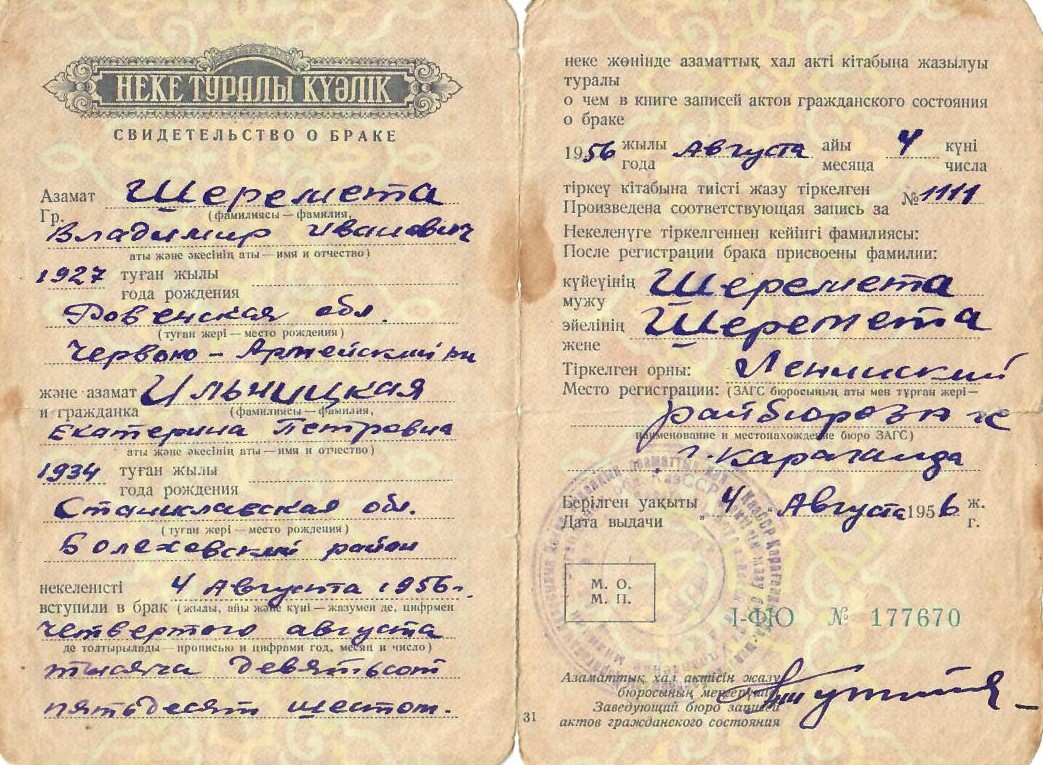 НЕКЕ ТУРАЛЫ КУӘЛІК
СВИДЕТЕЛЬСТВО О БРАКЕ
Азамат Шеремета
Гр. (фамилиясы — фамилия,
Владимир Иванович
аты және әкесінің аты — имя и отчество)
1927 туған жылы
года рождения
Ровенская обл.
(туған жері — место рождения)
Червоно-Армейский рн
және азамат Ильницкая
и гражданка (фамилиясы — фамилия,
Екатерина Петровна
аты және әкесінің аты — имя и отчество)
1934 туған жылы
года рождения
Станиславская обл.
(туған жері — место рождения)
Болеховский район
некеленісті 4 Августа 1956 г.
вступили в брак (жылы, айы және күні — жазумен де, цифрмен
четвертого августа
де толтырылады — прописью и цифрами год, месяц и число)
тысяча девятьсот
пятьдесят шестом.
неке жөнінде азаматтық хал акті кітабына жазылуы
туралы
о чем в книге записей актов гражданского состояния
о браке
1956 жылы Августа айы 4 күні
года месяца числа
тіркеу кітабына тиісті жазу тіркелген №1111
Произведена соответствующая запись за
Некеленуге тіркелгеннен кейінгі фамилиясы:
После регистрации брака присвоены фамилии:
күйеуінің Шеремета
мужу
әйелінің Шеремета
жене
Тіркелген орны: Ленинский
Место регистрации: (ЗАГС бюросының аты мен тұрған жері—
райбюро
наименование и местонахождение бюро ЗАГС)
г. Караганда
Берілген уақыты „4 Августа 1956 ж.
Дата выдачи г.
М. О.
М. П.
І-ФЮ № 177670
Азаматтық хал актісін жазу
бюросының меңгерушісі
Заведующий бюро записей
актов гражданского состояния
31